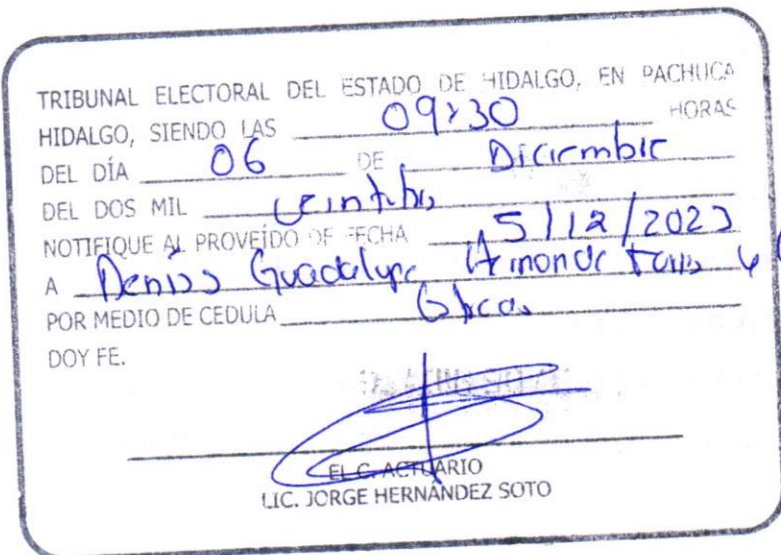 TRIBUNAL ELECTORAL DEL ESTADO DE HIDALGO, EN PACHUCA
HIDALGO, SIENDO LAS 09:30 HORAS
DEL DÍA 06 DE Diciembre
DEL DOS MIL
NOTIFIQUE AL PROVEÍDO DE FECHA 5/12/2023
A Guadalupe
POR MEDIO DE CEDULA
DOY FE.
EL C. ACTUARIO
LIC. JORGE HERNÁNDEZ SOTO